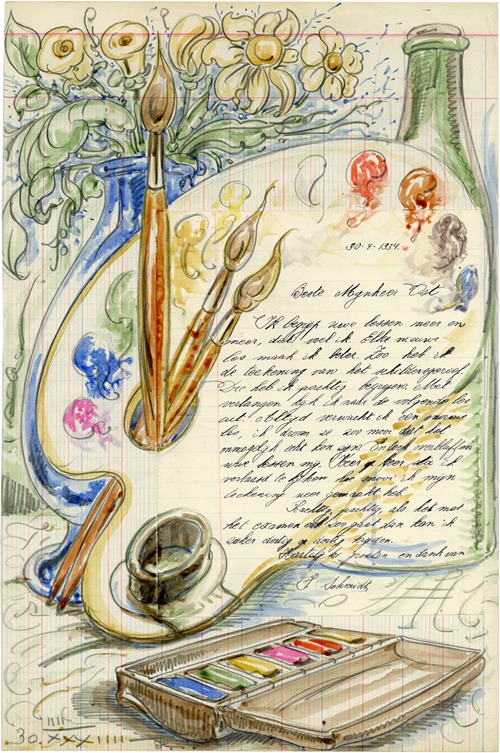 30-4-1934.
Beste Mynheer Ost
Ik begrijp uwe lessen meer en
meer, dat voel ik. Elke nieuwe
les maak ik beter. Zoo heb ik
de teekening van het schildersgereef
Die heb ik prachtig begrepen. Met
verlangen kijk ik naar de volgende les
uit. Altijd verwacht ik een nieuwe
les, ik droom er van dat het
mogelijk echt kon zyn. En toch
uwe lessen my. Keer op keer sta ik
verbaasd te kijken hoe mooi ik mijn
teekening weer gemaakt heb.
Prachtig, prachtig, als het met
het examen ook zoo gaat dan kan ik
zeker dertig op dertig krijgen.
Hartelijke groeten en dank van
J. Schmidt
30.XXXIIII